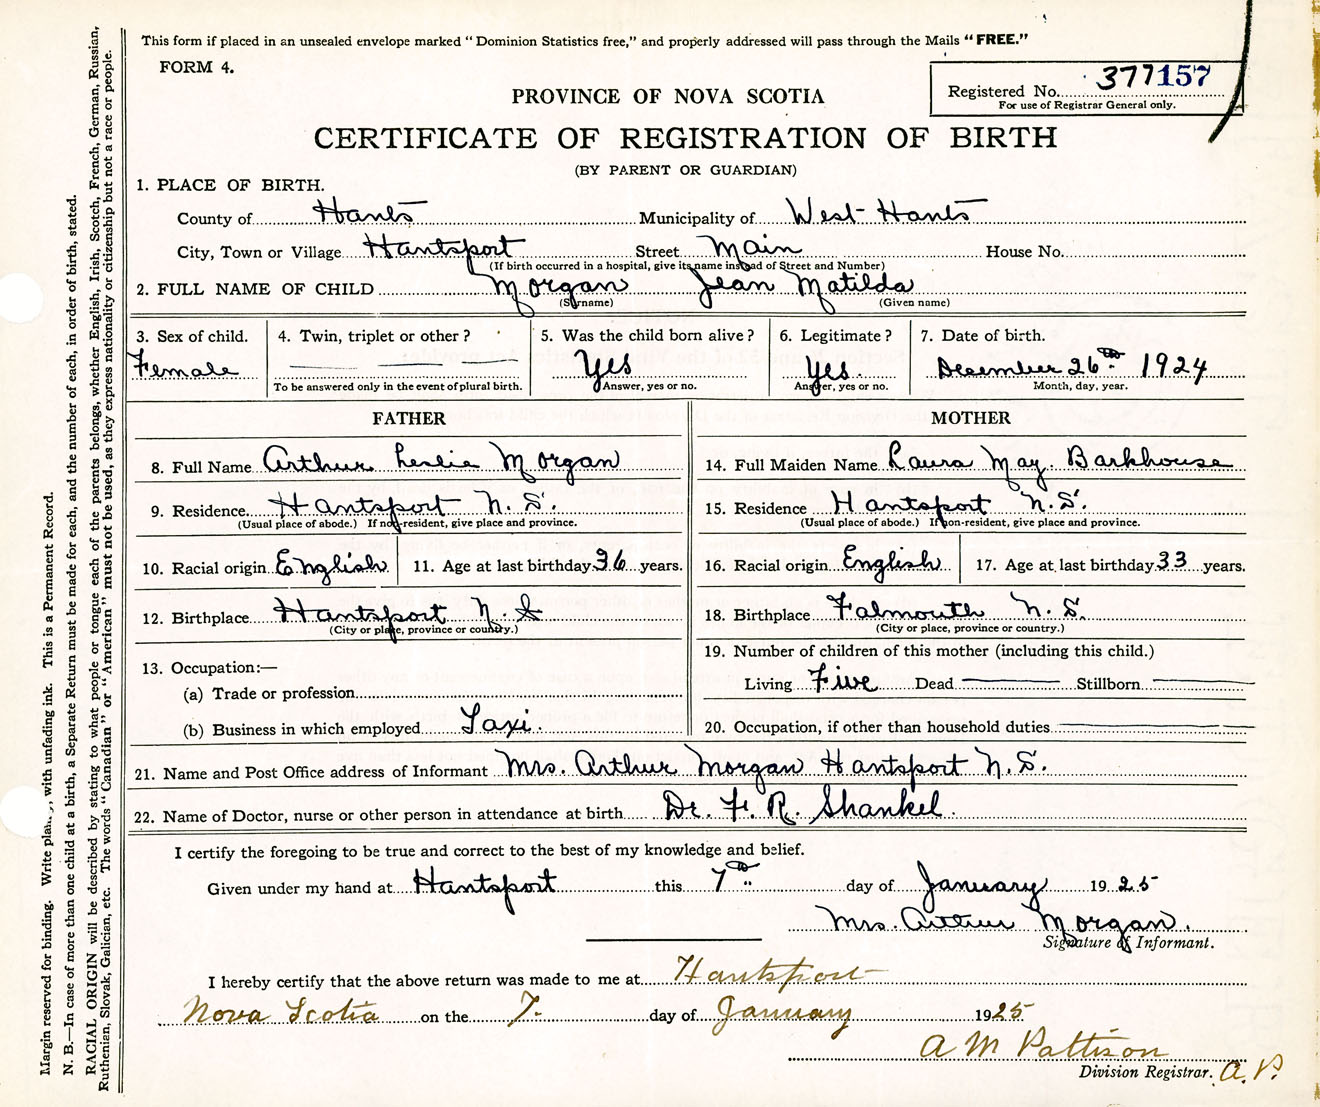 This form if placed in an unsealed envelope marked "Dominion Statistics free," and properly addressed will pass through the Mails "FREE."
FORM 4.
Registered No. 377157
For use of Registrar General only.
PROVINCE OF NOVA SCOTIA
CERTIFICATE OF REGISTRATION OF BIRTH
(BY PARENT OR GUARDIAN)
1. PLACE OF BIRTH.
County of Hants Municipality of West Hants
City, Town or Village Hantsport Street Main House No.
(If birth occurred in a hospital, give its name instead of Street and Number)
2. FULL NAME OF CHILD Morgan Jean Matilda
(Surname) (Given name)
3. Sex of child. 4. Twin, triplet or other? 5. Was the child born alive? 6. Legitimate? 7. Date of birth.
Female Yes Yes. December 26th 1924
To be answered only in the event of plural birth. Answer, yes or no. Answer, yes or no. Month, day, year.
FATHER MOTHER
8. Full Name Arthur Leslie Morgan 14. Full Maiden Name Laura May. Barkhouse
9. Residence. Hantsport N. S. 15. Residence Hantsport N.S.
(Usual place of abode.) If non-resident, give place and province. (Usual place of abode.) If non-resident, give place and province.
10. Racial origin English 11. Age at last birthday 36 years. 16. Racial origin English 17. Age at last birthday 33 years.
12. Birthplace Hantsport N.S 18. Birthplace Falmouth N.S.
(City or place, province or country.) (City or place, province or country.)
19. Number of children of this mother (including this child.)
13. Occupation:—
Living Five Dead Stillborn
(a) Trade or profession
(b) Business in which employed Taxi. 20. Occupation, if other than household duties
21. Name and Post Office address of Informant Mrs. Arthur Morgan Hantsport N.S.
22. Name of Doctor, nurse or other person in attendance at birth Dr. F. R. Shankel.
I certify the foregoing to be true and correct to the best of my knowledge and belief.
Given under my hand at Hantsport this 7th day of January 1925
Mrs. Arthur Morgan.
Signature of Informant.
I hereby certify that the above return was made to me at Hantsport
Nova Scotia on the 7. day of January 1925
A M Pattison
Division Registrar. A.P.
Margin reserved for binding. Write , with unfading ink. This is a Permanent Record.
N. B.—In case of more than one child at a birth, a Separate Return must be made for each, and the number of each, in order of birth, stated.
RACIAL ORIGIN will be described by stating to what people or tongue each of the parents belongs, whether English, Irish, Scotch, French, German, Russian,
Ruthenian, Slovak, Galician, etc. The words "Canadian" or "American" must not be used, as they express nationality or citizenship but not a race or people.